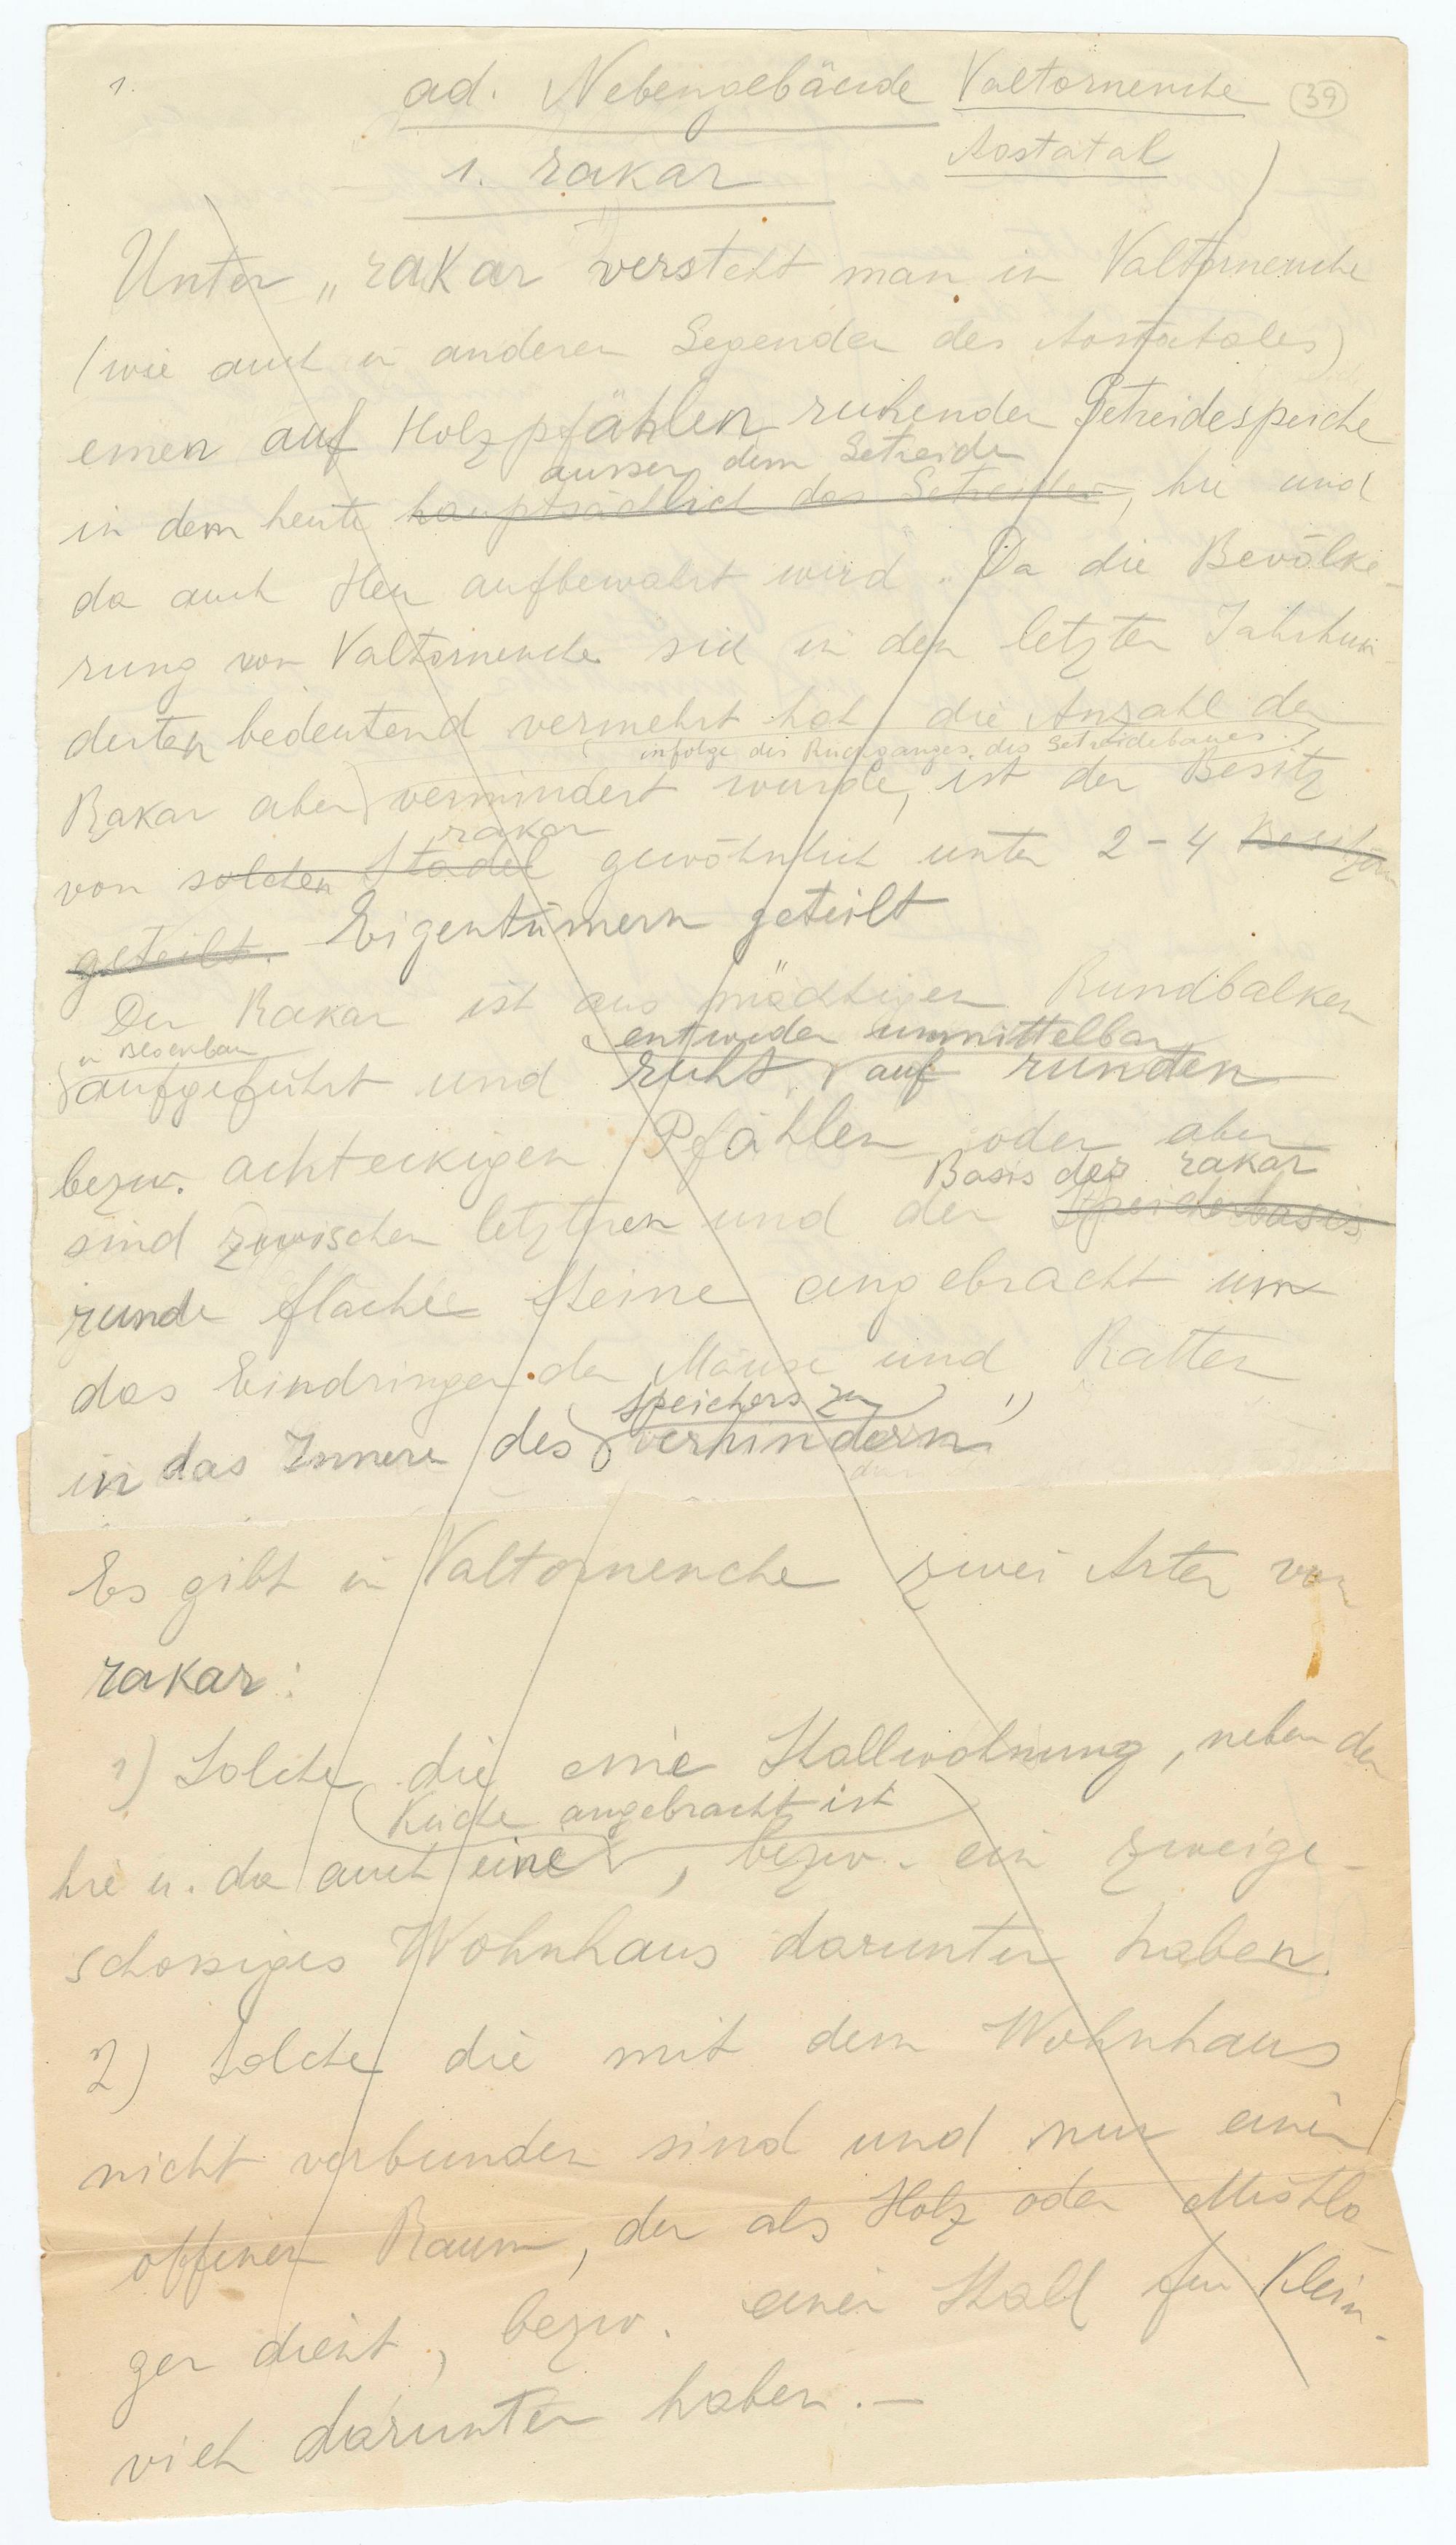 1. ad. Nebengebäude Valtornenche 39
Aostatal
1. rakar
Unter „rakar versteht man in Valtornenche
(wie auch in anderen Gegenden des Aostatales)
einen auf Holzpfählen ruhenden Getreidespeicher
ausser dem Getreide
in dem heute hauptsächlich das Getreide, hie und
da auch Heu aufbewahrt wird. Da die Bevölke-
rung von Valtornenche sich in den letzten Jahrhun-
derten bedeutend vermehrt hat, die Anzahl der
infolge des Rückganges des Getreidebaues
Rakar aber vermindert wurde, ist der Besitz
rakar
von solchen Stadel gewöhnlich unter 2-4 Besitzern
geteilt. Eigentümern geteilt
Der Rakar ist aus mächtigen Rundbalken
in Blockbau entweder unmittelbar
aufgeführt und ruht auf runden
bezw. achteckigen Pfählen oder aber
Basis des rakar
sind zwischen letzteren und der Speicherbasis
runde flache Steine angebracht um
das Eindringen der Mäuse und Ratten
Speichers zu 1)
in das Innere des verhindern
Es gibt in Valtornenche zwei Arten von
rakar:
1) Solche die eine Stallwohnung, neben der
Küche angebracht ist
hie u. da auch eine, bezw. ein zweige-
schossiges Wohnhaus darunter haben.
2) Solche die mit dem Wohnhaus
nicht verbunden sind und nur einen
offenen Raum, der als Holz oder Mistla-
ger dient, bezw. einen Stall für Klein-
vieh darunter haben.—